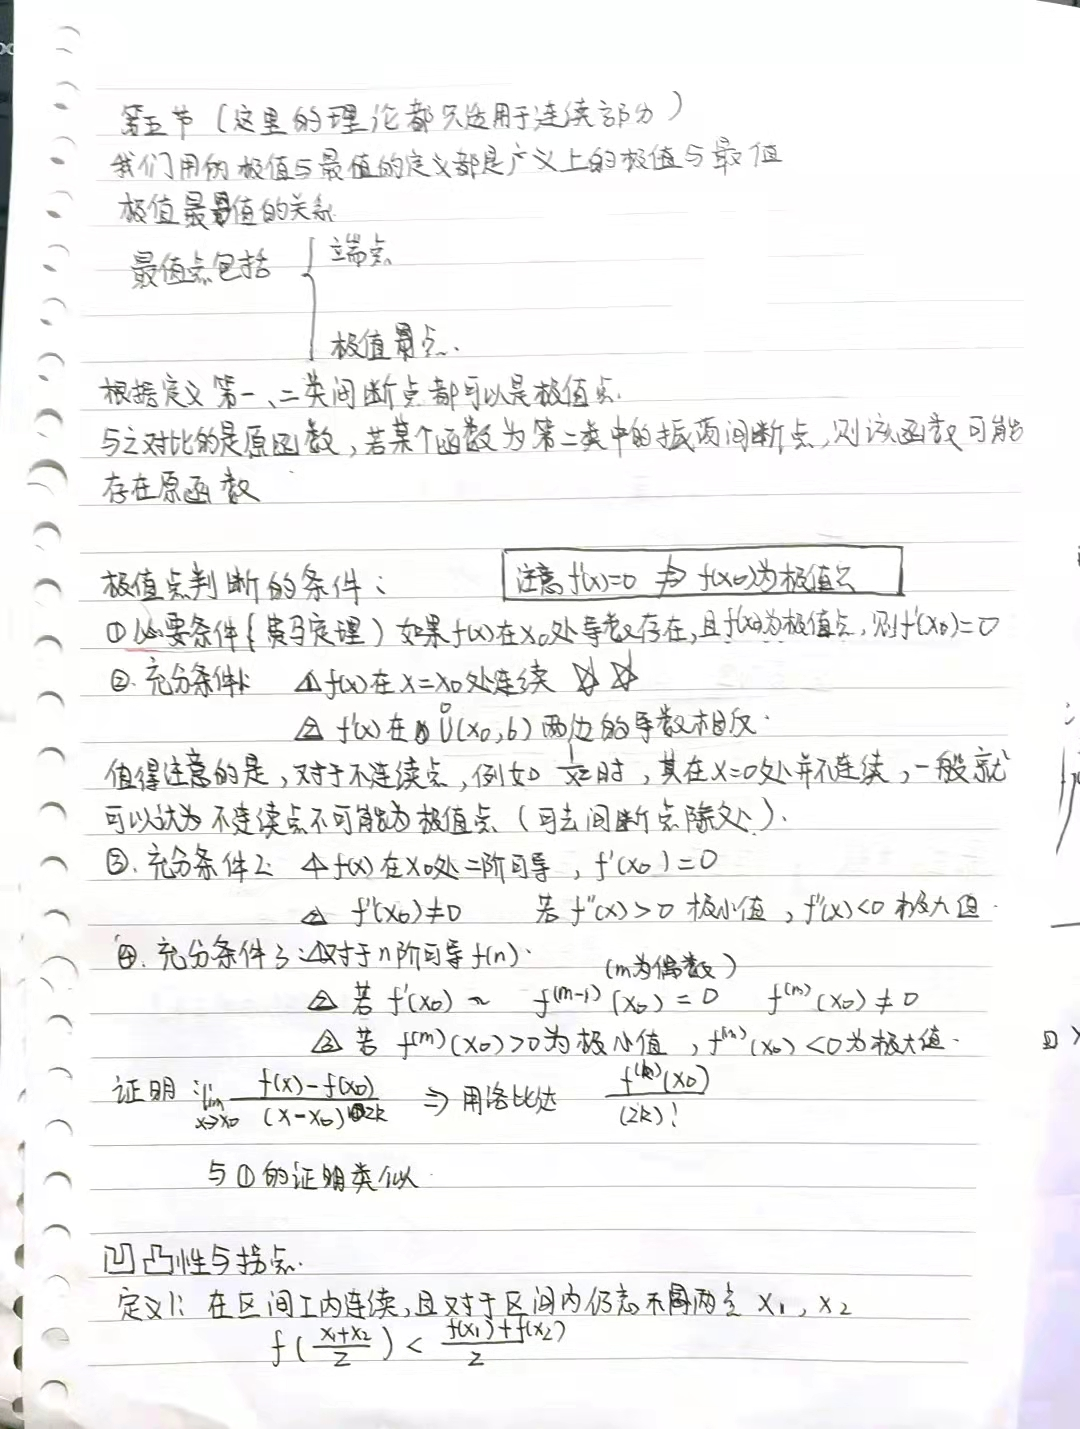 第五节（这里的理论都只适用于连续部分）
我们用的极值与最值的定义都是广义上的极值与最值
极值最值的关系
最值点包括 { 端点
极值点.
根据定义第一、二类间断点都可以是极值点.
与之对比的是原函数，若某个函数为第二类中的振两间断点，则该函数可能
存在原函数
极值点判断的条件： 注意f'(x)=0 ⇏ f(x0)为极值点
①必要条件(费马定理）如果f(x)在x0处导数存在,且f(x0)为极值点,则f'(x0)=0
②.充分条件1 △1 f(x)在x=x0处连续 ☆☆
△2 f'(x)在Ů(x0,δ)两边的导数相反.
值得注意的是，对于不连续点，例如 1/x²时，其在x=0处并不连续，一般就
可以认为不连续点不可能为极值点（可去间断点除处）.
③.充分条件2 △1 f(x)在x0处二阶可导，f'(x0)=0
△2 f''(x0)≠0 若f''(x)>0极小值，f''(x)<0极大值.
④.充分条件3:△1对于n阶可导f(n).
(m为偶数）
△2 若f'(x0)~ f^(m-1)(x0)=0 f^(m)(x0)≠0
△3 若 f^(m)(x0)>0为极小值，f^(m)(x0)<0为极大值.
证明: lim x→x0 f(x)-f(x0)/(x-x0)^2k ⇒用洛比达 f^(k)(x0)/(2k)!
与①的证明类似.
凹凸性与拐点.
定义1: 在区间I内连续,且对于区间内任意不同两点 x1,x2
f(x1+x2/2)< f(x1)+f(x2)/2